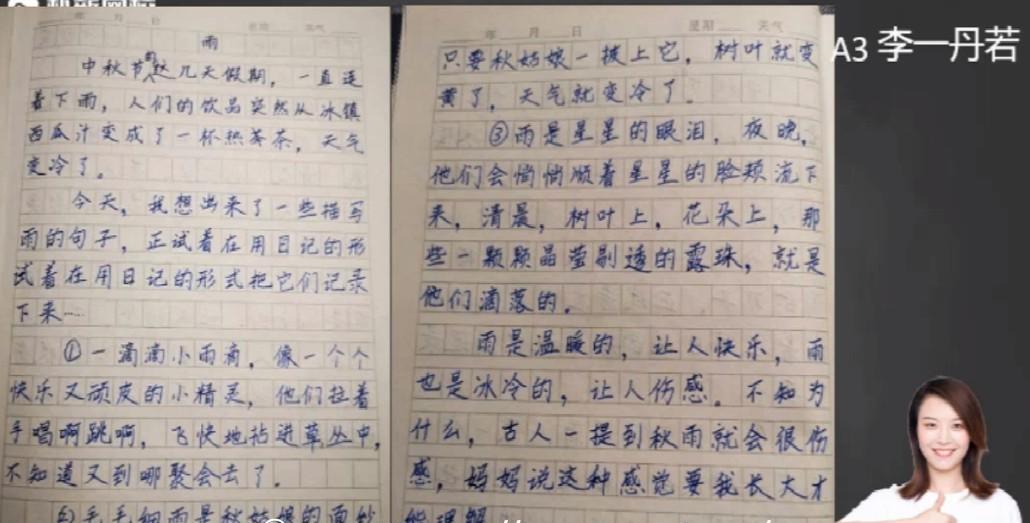 年 月 日 星期 天气
雨
中秋节的这几天假期，一直连
着下雨，人们的饮品突然从冰镇
西瓜汁变成了一杯热茶，天气
变冷了。
今天，我想出来了一些描写
雨的句子，正试着在用日记的形
试着在用日记的形式把它们记录
下来……
①一滴滴小雨滴，像一个个
快乐又顽皮的小精灵，他们拉着
手唱啊跳啊，飞快地钻进草丛中，
不知道又到哪聚会去了。
②毛毛细雨是秋姑娘的面纱
年 月 日 星期 天气
只要秋姑娘一披上它，树叶就变
黄了，天气就变冷了。
③雨是星星的眼泪，夜晚，
他们会悄悄顺着星星的脸颊流下
来，清晨，树叶上，花朵上，那
些一颗颗晶莹剔透的露珠，就是
他们滴落的。
雨是温暖的，让人快乐，雨
也是冰冷的，让人伤感。不知为
什么，古人一提到秋雨就会很伤
感，妈妈说这种感觉要我长大才
能理解
A3 李一丹若